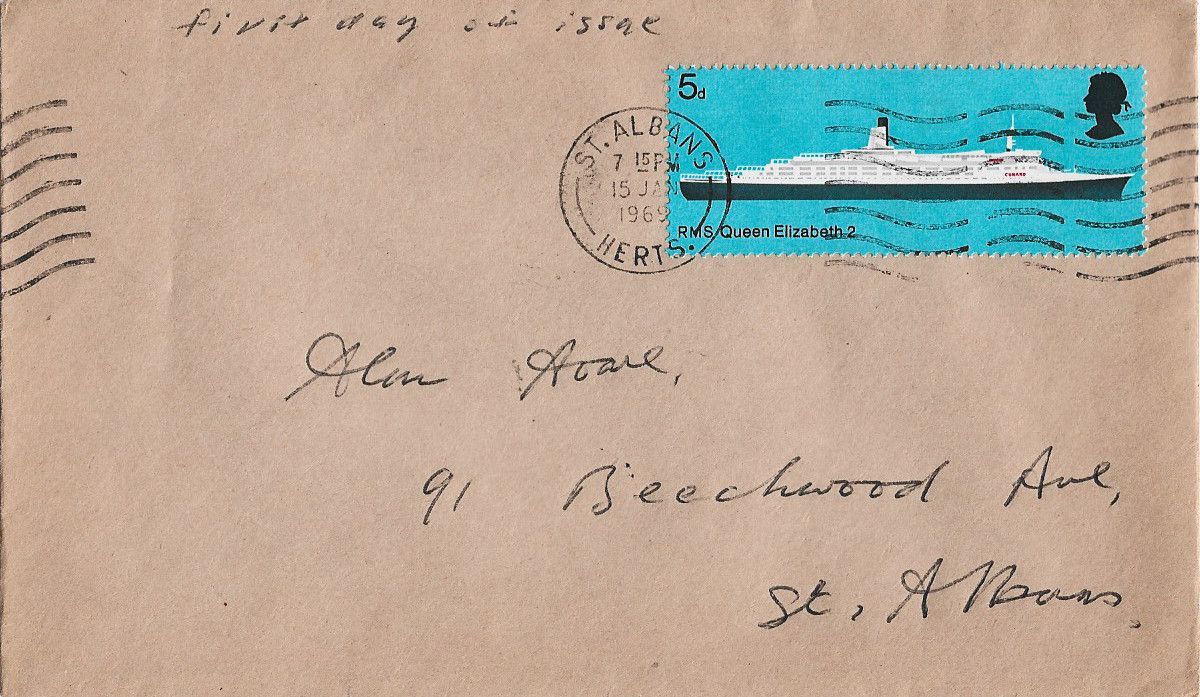 first day of issue
5d
ST. ALBANS
7 15 PM
15 JAN
1969
HERTS.
CUNARD
RMS Queen Elizabeth 2
Alan Hoare,
91 Beechwood Ave,
St. Albans.